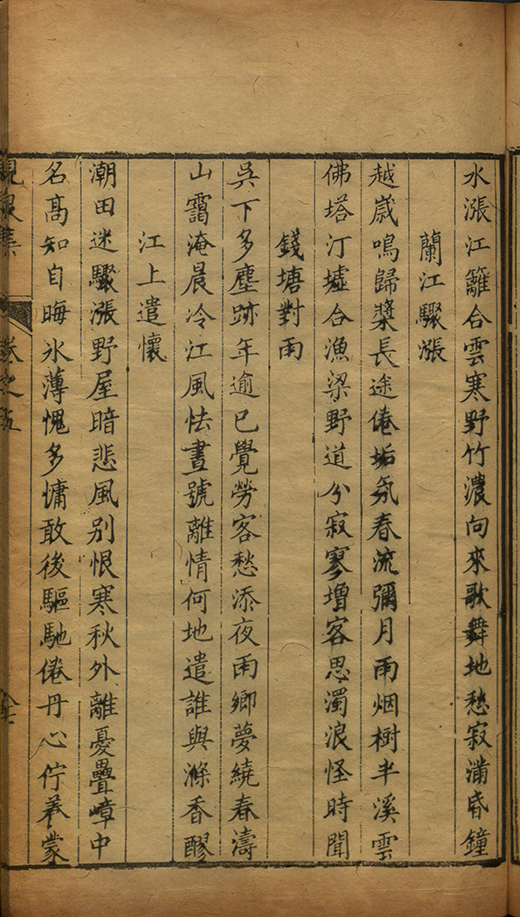 水漲江籬合雲寒野竹濃向來歌舞地愁寂滿昏鐘
蘭江驟漲
越歳鳴歸槳長途倦垢氛春流彌月雨烟樹半溪雲
佛塔汀墟合漁梁野道分寂寥增客思濁浪怪時聞
錢塘對雨
吳下多塵跡年逾已覺勞客愁添夜雨鄉夢繞春濤
山靄淹晨冷江風怯晝號離情何地遣誰與滌香醪
江上遣懷
潮田迷驟漲野屋暗悲風别恨寒秋外離憂疊嶂中
名髙知自晦氷薄愧多慵敢後驅馳倦丹心佇養蒙
卷之五